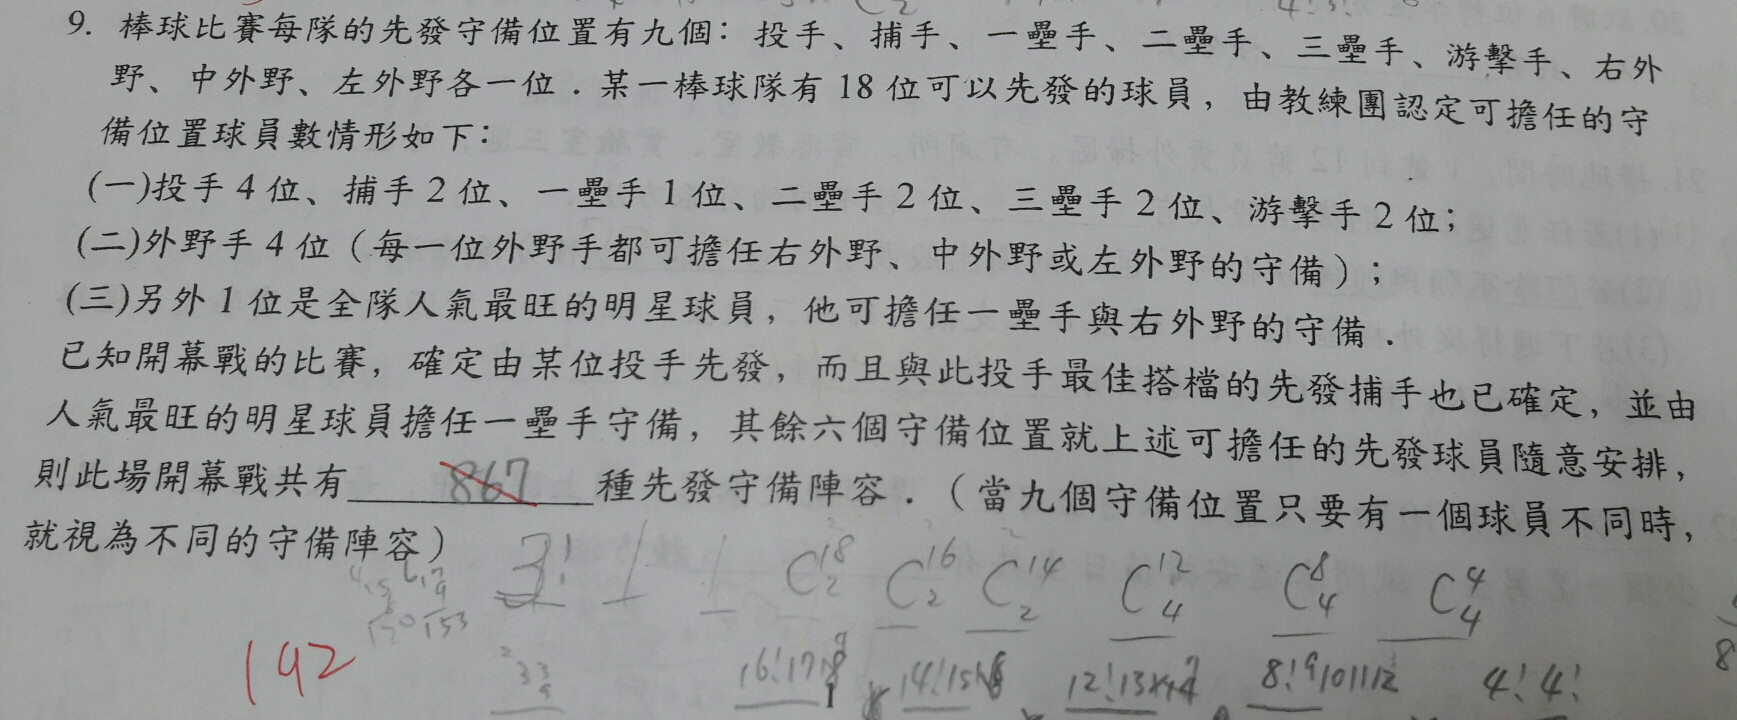 9. 棒球比賽每隊的先發守備位置有九個：投手、捕手、一壘手、二壘手、三壘手、游擊手、右外
野、中外野、左外野各一位．某一棒球隊有 18 位可以先發的球員，由教練團認定可擔任的守
備位置球員數情形如下：
(一)投手 4 位、捕手 2 位、一壘手 1 位、二壘手 2 位、三壘手 2 位、游擊手 2 位；
(二)外野手 4 位（每一位外野手都可擔任右外野、中外野或左外野的守備）；
(三)另外 1 位是全隊人氣最旺的明星球員，他可擔任一壘手與右外野的守備．
已知開幕戰的比賽，確定由某位投手先發，而且與此投手最佳搭檔的先發捕手也已確定，並由
人氣最旺的明星球員擔任一壘手守備，其餘六個守備位置就上述可擔任的先發球員隨意安排，
則此場開幕戰共有 867 種先發守備陣容．（當九個守備位置只要有一個球員不同時，
就視為不同的守備陣容）
3! 1 1 C18 2 C16 2 C14 2 C12 4 C8 4 C4 4
192